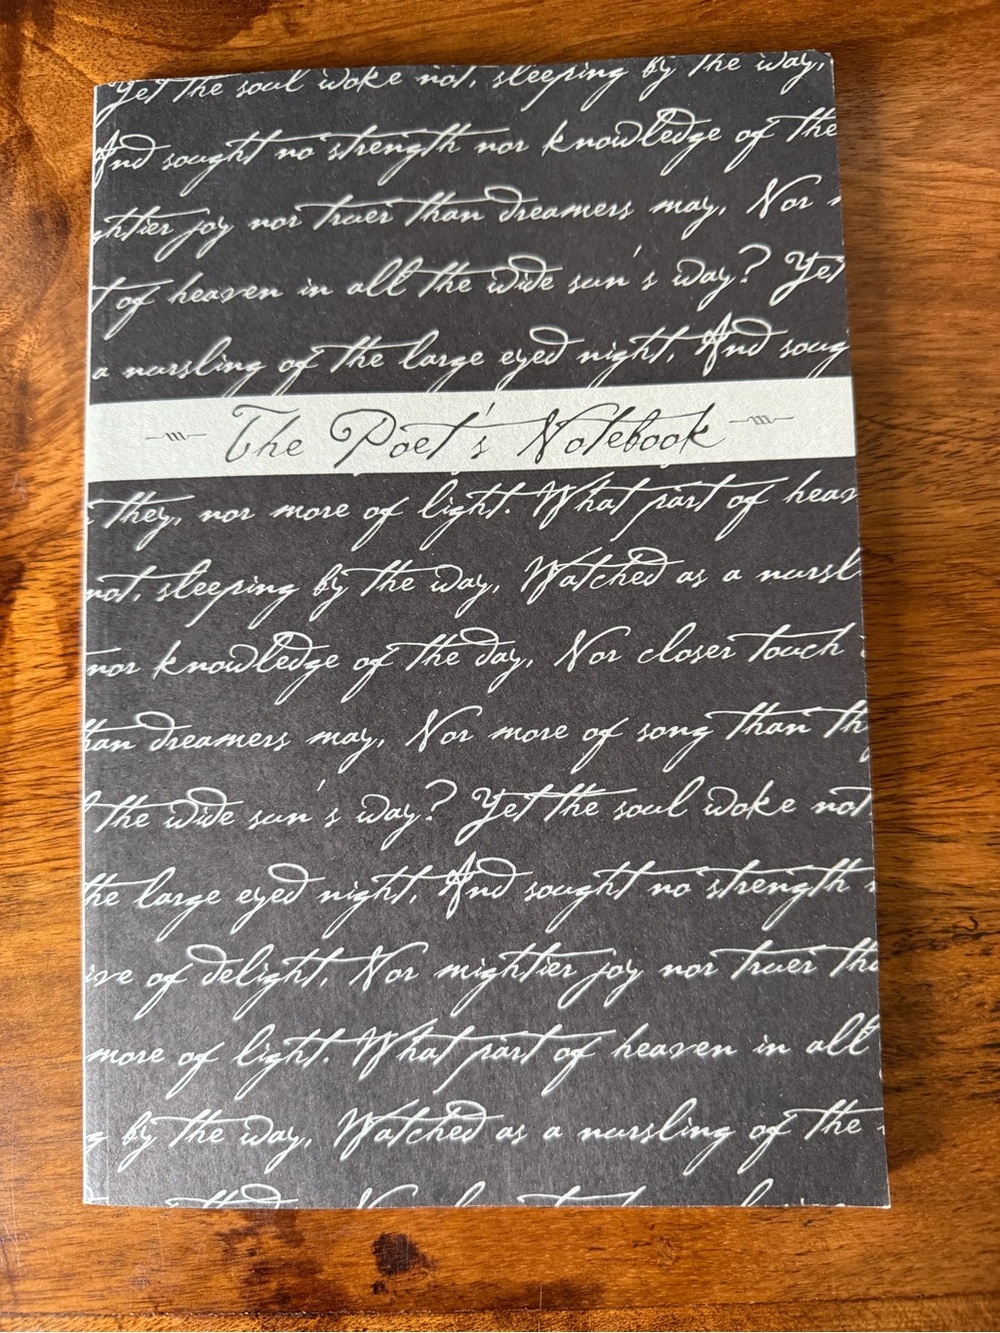 Yet the soul woke not, sleeping by the way,
And sought no strength nor knowledge of the
ghtier joy nor truer than dreamers may, Nor
t of heaven in all the wide sun's way? Yet
a nursling of the large eyed night, And soug
The Poet's Notebook
they, nor more of light. What part of heav
not, sleeping by the way, Watched as a nursl
nor knowledge of the day, Nor closer touch
han dreamers may, Nor more of song than th
the wide sun's way? Yet the soul woke not
the large eyed night, And sought no strength
ive of delight, Nor mightier joy nor truer tha
more of light. What part of heaven in all
g by the way, Watched as a nursling of the